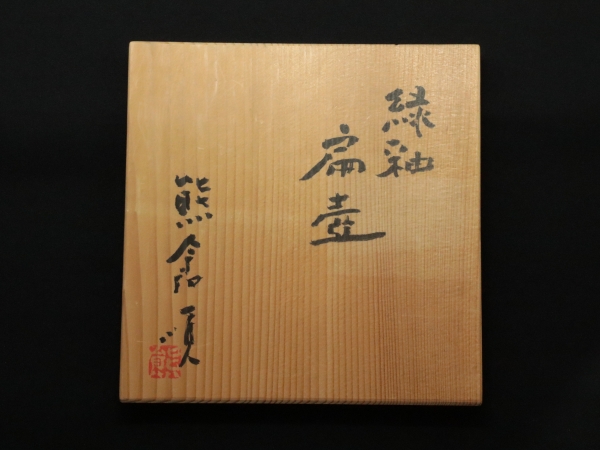 緑釉
扁壺
熊倉順吉